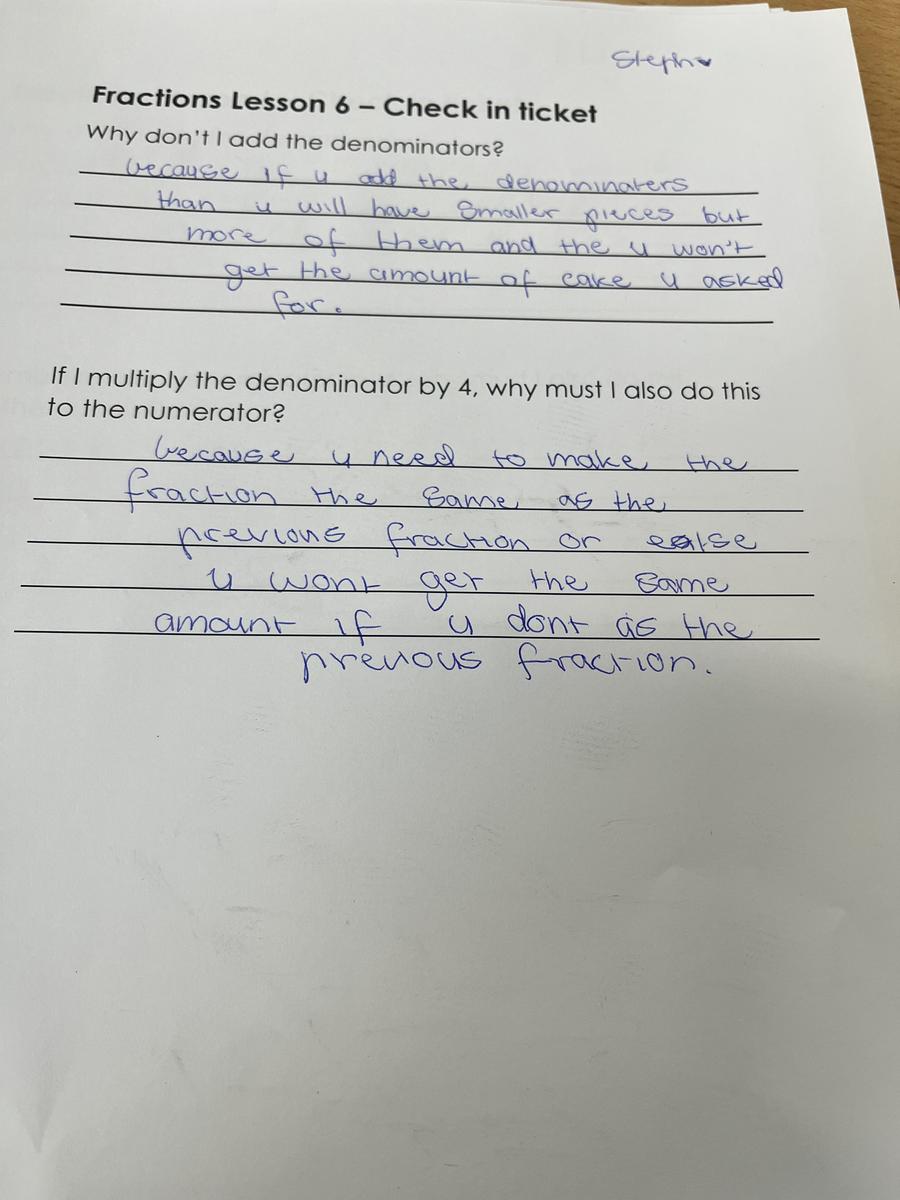 Steph♥
Fractions Lesson 6 – Check in ticket
Why don't I add the denominators?
because if u add the denominaters
than u will have smaller pieces but
more of them and the u won't
get the amount of cake u asked
for.
If I multiply the denominator by 4, why must I also do this
to the numerator?
because u need to make the
fraction the same as the
previous fraction or else
u wont get the same
amount if u dont as the
previous fraction.